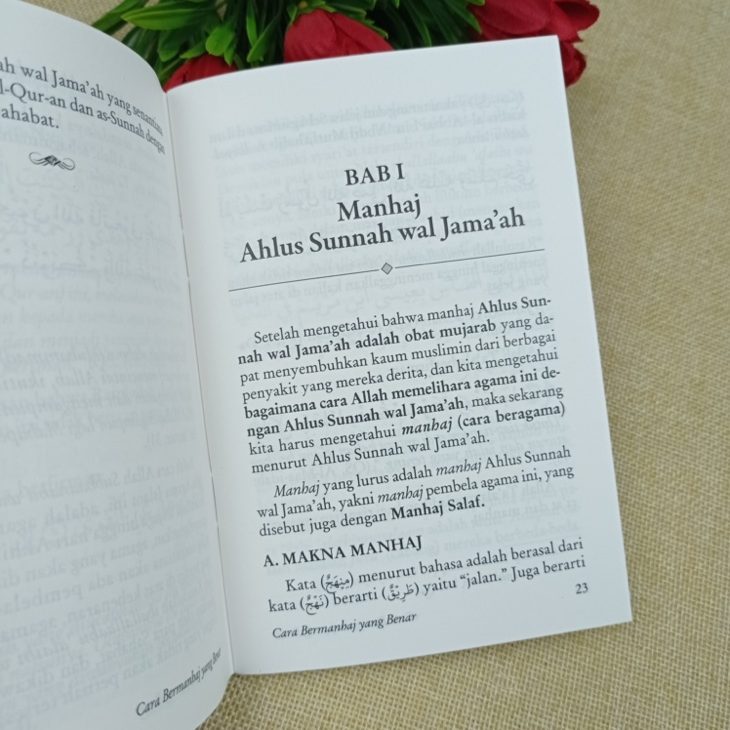 ah wal Jama'ah yang senantiasa
l-Qur-an dan as-Sunnah dengan
ahabat.
Cara Bermanhaj yang Benar
BAB I
Manhaj
Ahlus Sunnah wal Jama'ah
Setelah mengetahui bahwa manhaj Ahlus Sun-
nah wal Jama'ah adalah obat mujarab yang da-
pat menyembuhkan kaum muslimin dari berbagai
penyakit yang mereka derita, dan kita mengetahui
bagaimana cara Allah memelihara agama ini de-
ngan Ahlus Sunnah wal Jama'ah, maka sekarang
kita harus mengetahui manhaj (cara beragama)
menurut Ahlus Sunnah wal Jama'ah.
Manhaj yang lurus adalah manhaj Ahlus Sunnah
wal Jama'ah, yakni manhaj pembela agama ini, yang
disebut juga dengan Manhaj Salaf.
A. MAKNA MANHAJ
Kata (مِنْهَجٌ) menurut bahasa adalah berasal dari
kata (نَهْجٌ) berarti (طَرِيْقٌ) yaitu “jalan.” Juga berarti
Cara Bermanhaj yang Benar
23